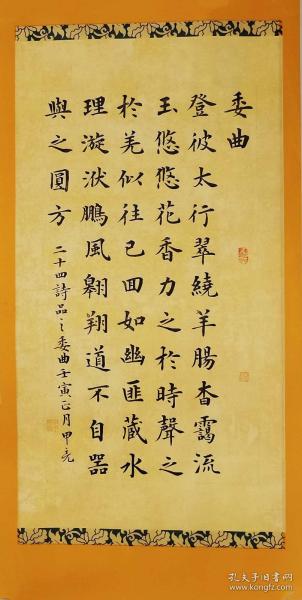 委曲
登彼太行翠繞羊腸杳靄流
玉悠悠花香力之於時聲之
於羌似往已回如幽匪藏水
理漩洑鵬風翱翔道不自器
與之圓方
二十四詩品之委曲壬寅正月甲亮
孔夫子旧书网
www.kongfz.com